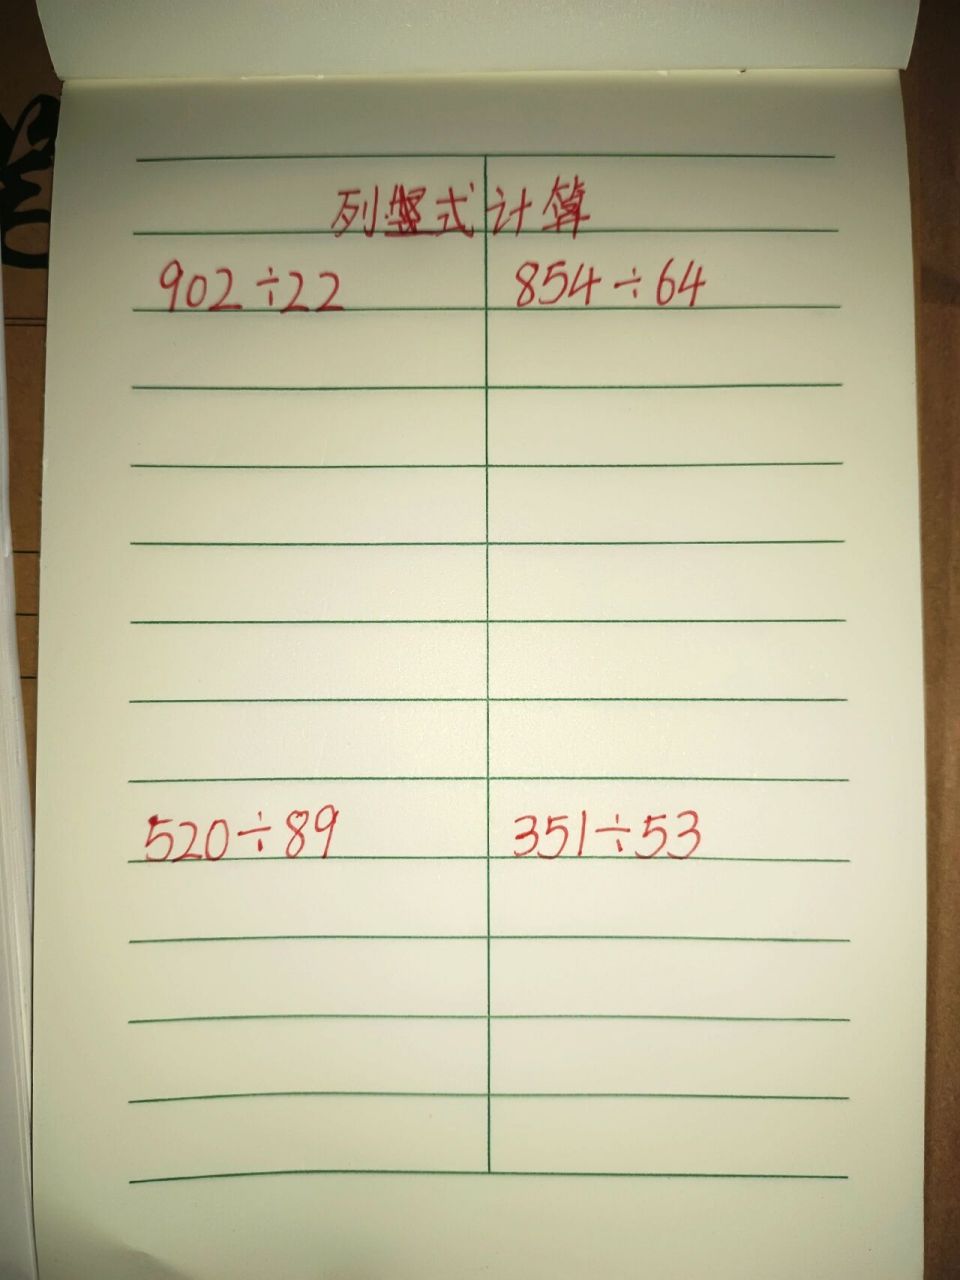 列竖式计算
902÷22 854÷64
520÷89 351÷53